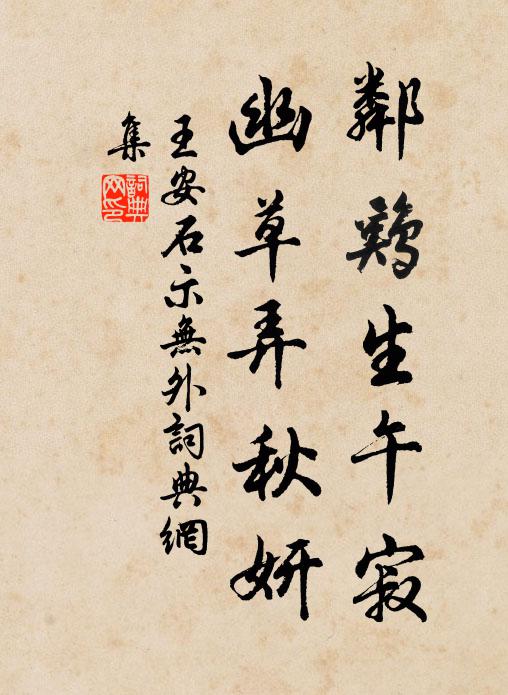 鄰鷄生午寂
幽草弄秋妍
王安石示無外詞典網
集
詞典網印